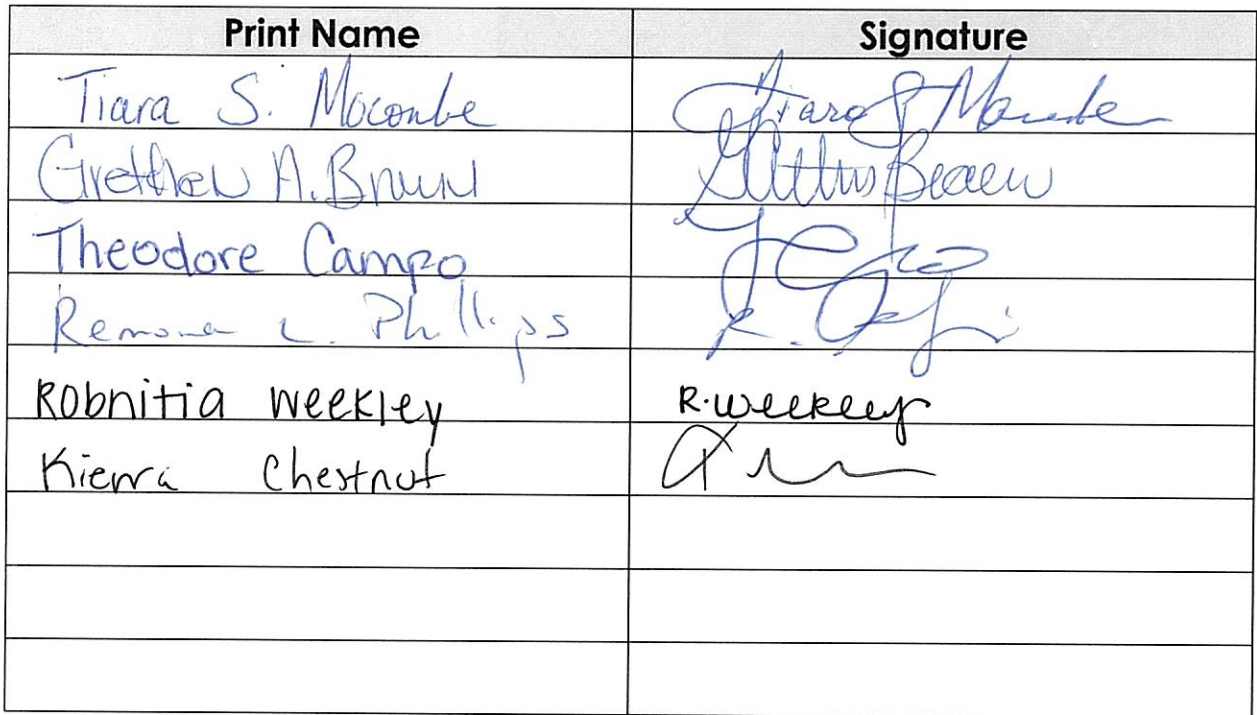 Print Name Signature
Tiara S. Mocombe Tiara S Mocombe
Gretchen A. Brown
Theodore Campo
Remona L. Phillips
Robnitia Weekley R. Weekley
Kierra Chestnut